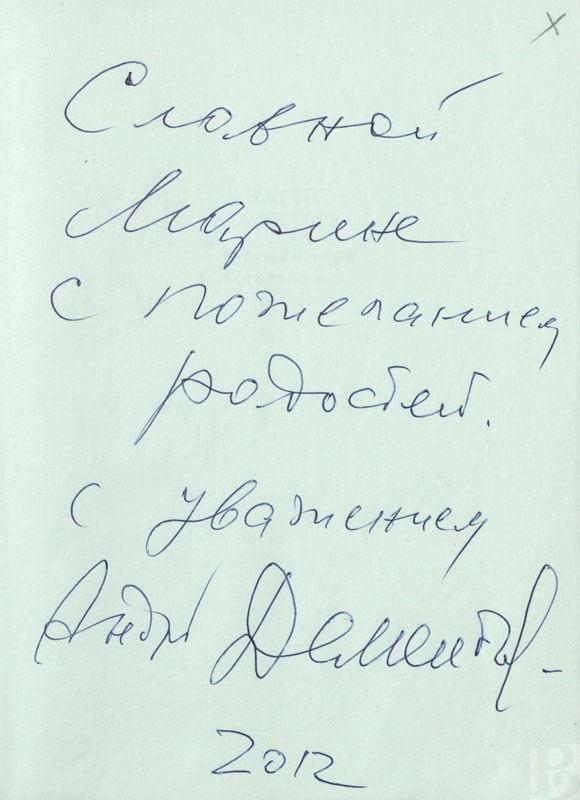 Славной
Марине
с пожеланием
радостей.
с уважением
Андрей Дементьев
2012